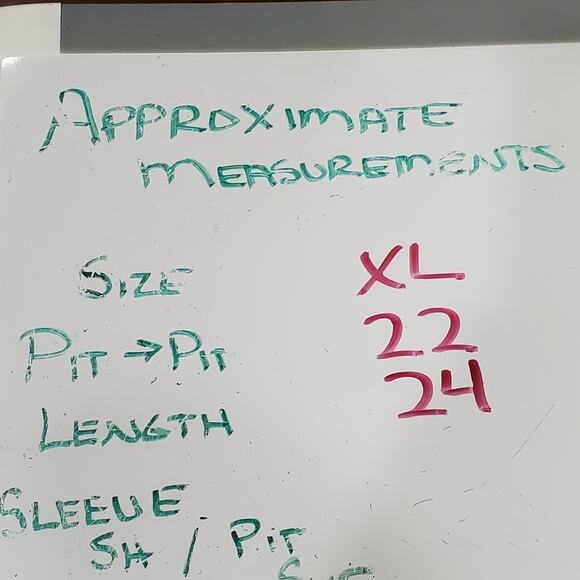 APPROXIMATE
MEASUREMENTS
SIZE XL
PIT → PIT 22
LENGTH 24
SLEEVE
SH / PIT